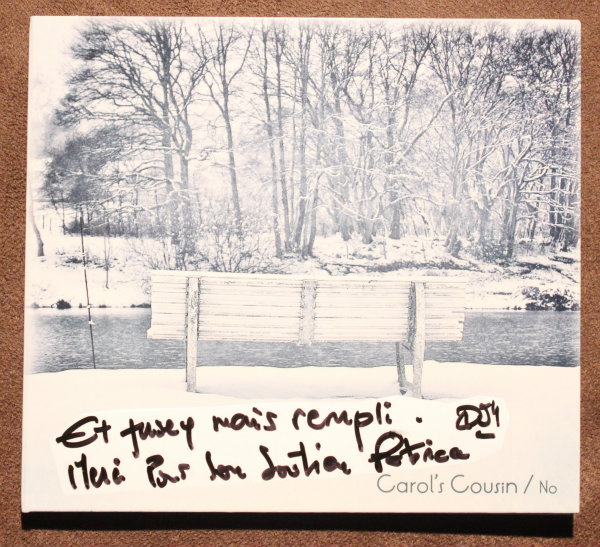 Et mais rempli.
Merci Pour Son Soutien Patrice
Carol's Cousin / No